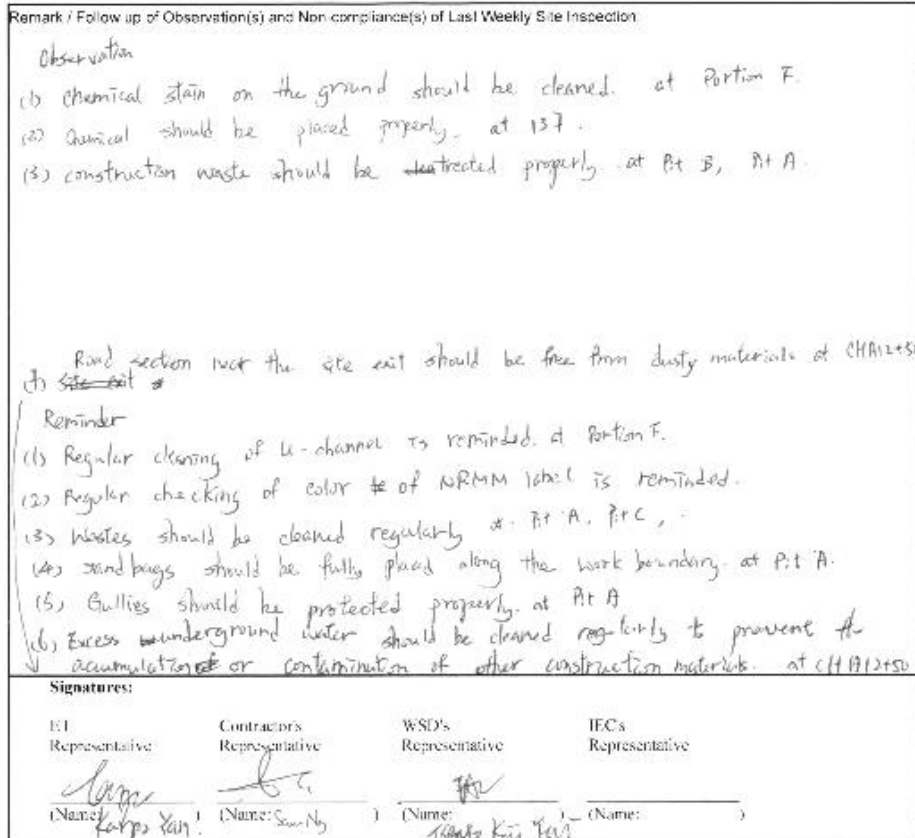 Remark / Follow up of Observation(s) and Non-compliance(s) of Last Weekly Site Inspection
Observation
(1) Chemical stain on the ground should be cleaned. at Portion F.
(2) Chemical should be placed properly. at 137.
(3) construction waste should be treated properly. at Pit B, Pit A.
Road section near the site exit should be free from dusty materials at CHA12+50
site exit
Reminder
(1) Regular cleaning of U-channel is reminded. at Portion F.
(2) Regular checking of color of NRMM label is reminded.
(3) Wastes should be cleaned regularly Pit A, Pit C,
(4) sand bags should be fully placed along the work boundary. at Pit A.
(5) Gullies should be protected properly. at Pit A
(6) Excess underground water should be cleaned regularly to prevent the
accumulation or contamination of other construction materials. at CHA12+50
Signatures:
ET Contractor's WSD's IEC's
Representative Representative Representative Representative
(Name: Yan ) (Name: ) (Name: ) (Name: )